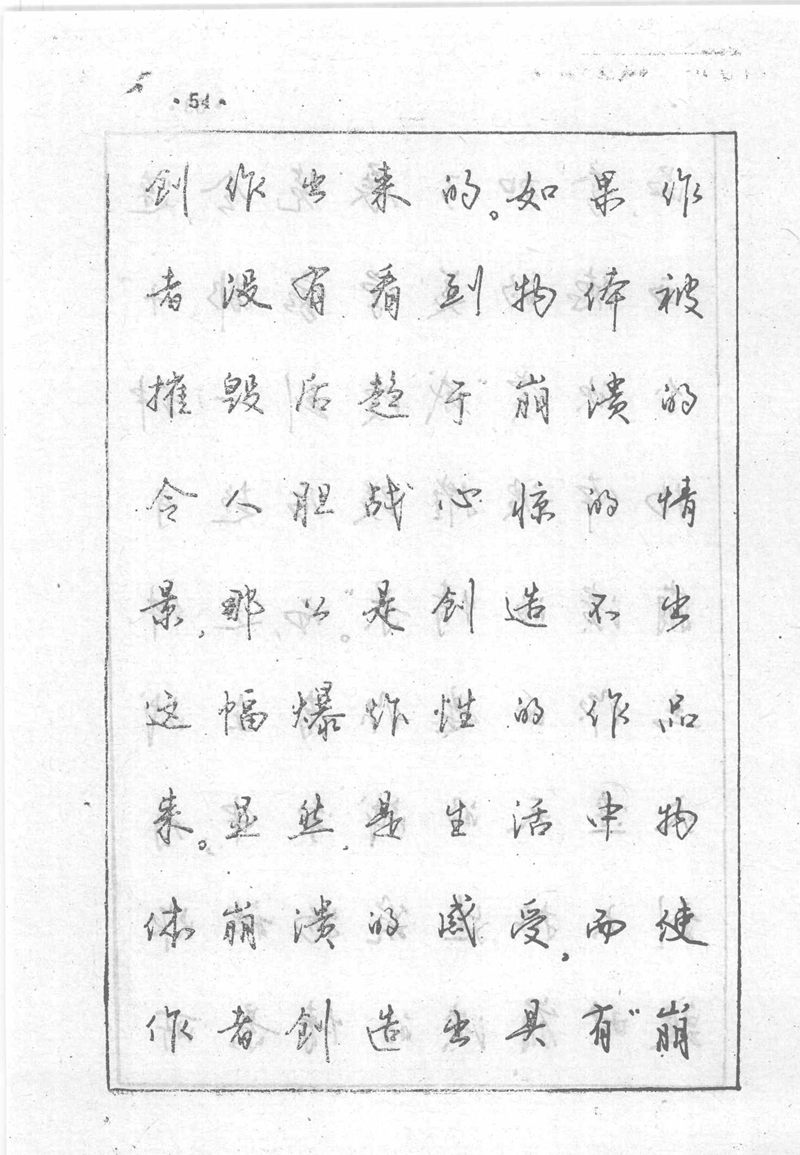 ·54·
创作出来的。如果作
者没有看到物体被
摧毁后趋于“崩溃的
令人胆战心惊的情
景,那么”是创造不出
这幅爆炸性的作品
来。显然,是生活中物
体崩溃的感受,而使
作者创造出具有“崩